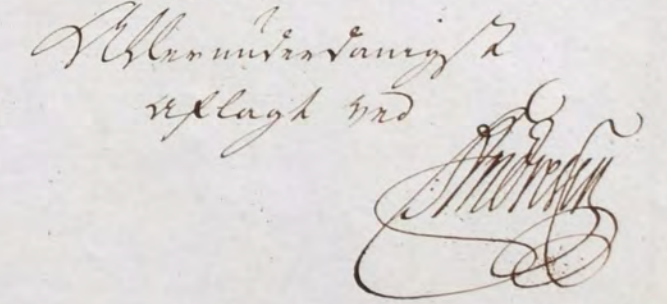 Allerunderdanigst
aflagt ved
Andresen